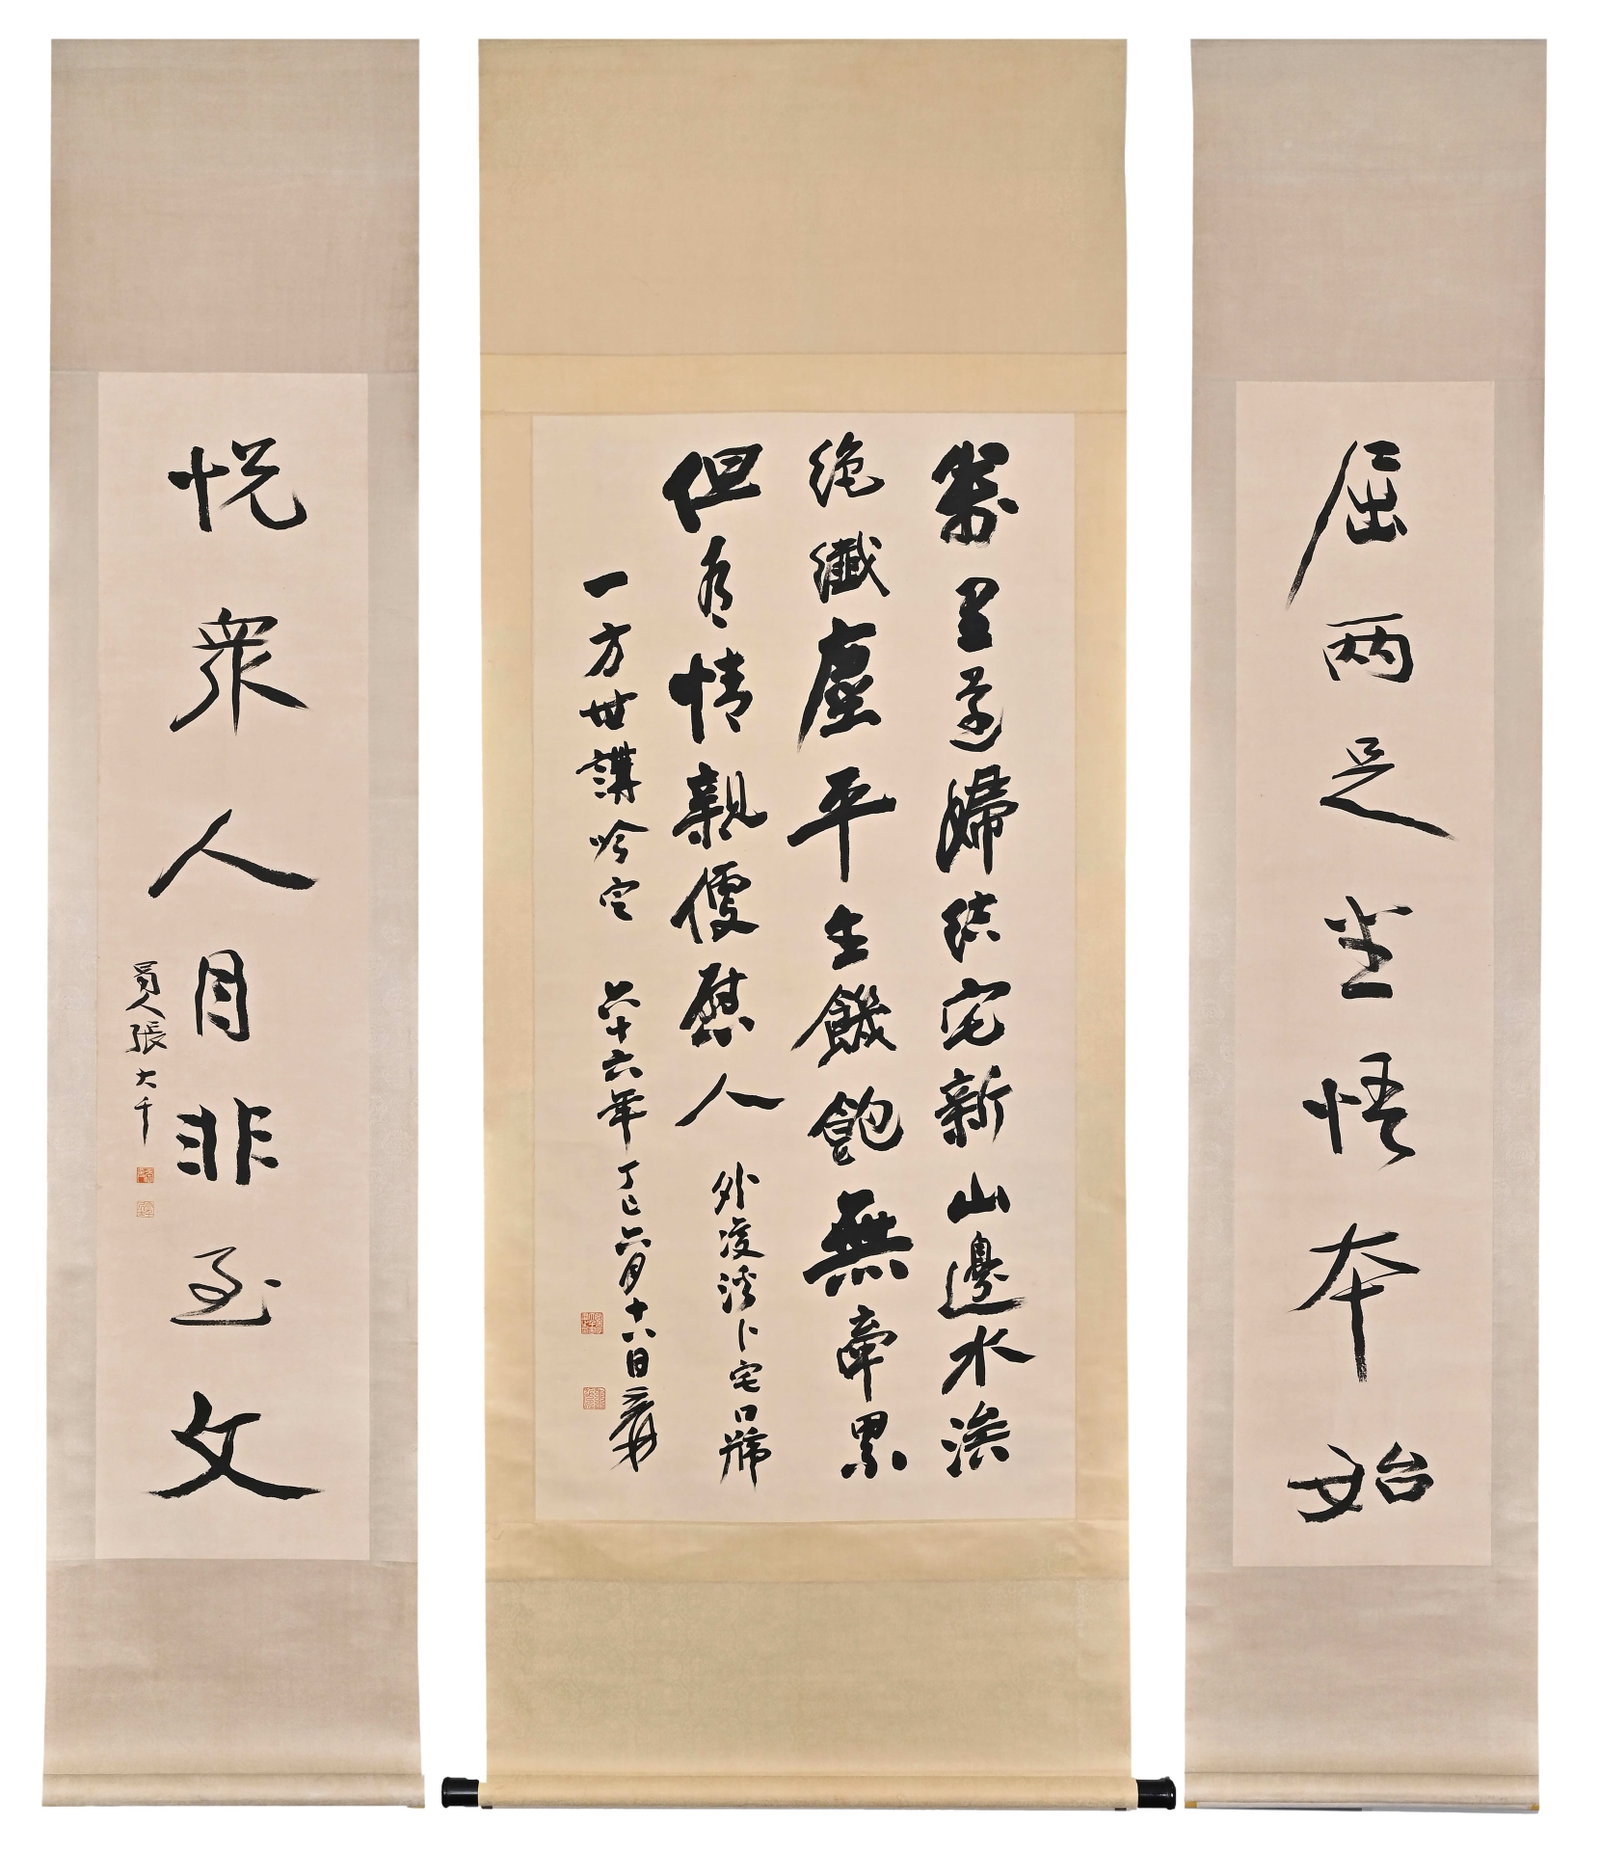 屈兩足坐悟本始
萬里還歸結宅新山邊水涘
絕纖塵平生饑飽無牽累
但有情親優慰人 外雙溪卜宅口號
一方世講吟定 六十六年丁巳六月十八日爰
悅眾人目非至文
蜀人張大千